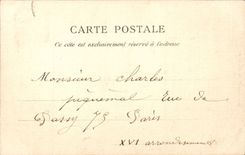 CARTE POSTALE
Ce côté est exclusivement réservé à l'adresse
Monsieur Charles
piquemal Rue de
Passy 75 Paris
XVI arrondissement